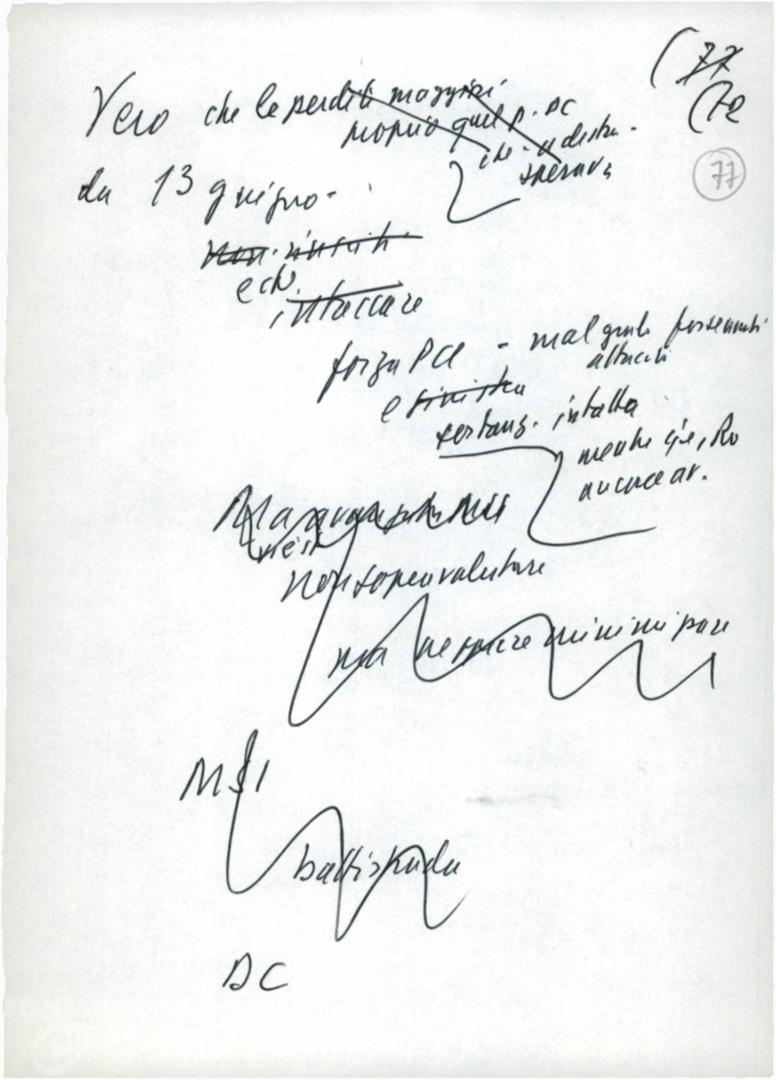 (77
(72
77
Vero che le perdite maggiori
proprio quel p. DC
che a destra
sperava
da 13 giugno -
non riusciti
e ch.
intaccare
forza PCI - malgrado forsennati
attacchi
e sinistra
sostanz. intatta
mentre
avanzata MSI
non sopravvalutare
ma neppure minimizzare
MSI
battistrada
DC